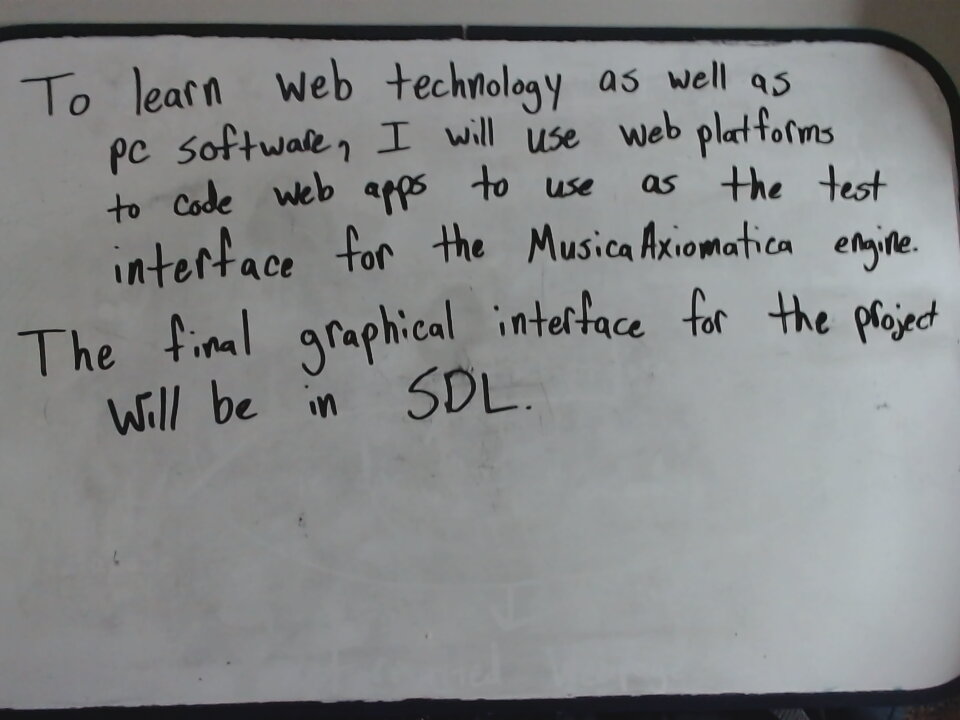 To learn web technology as well as
pc software, I will use web platforms
to code web apps to use as the test
interface for the MusicaAxiomatica engine.
The final graphical interface for the project
will be in SDL.